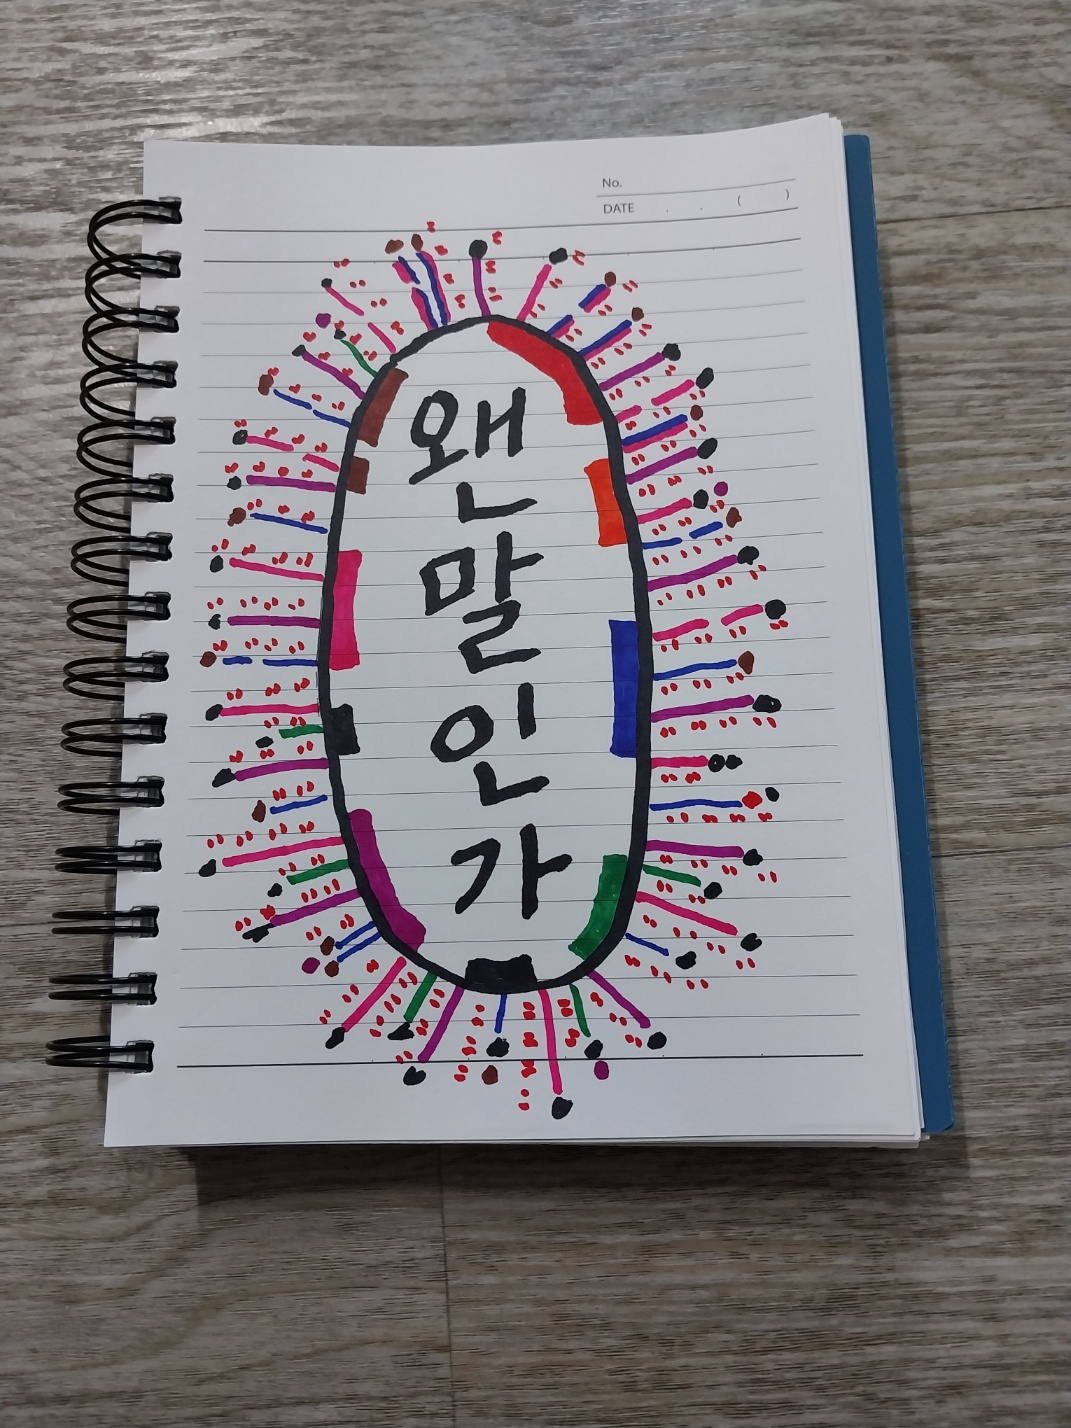 No.
DATE . . ( )
왠말인가